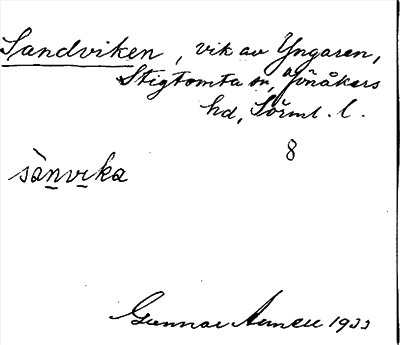 Sandviken, vik av Yngaren,
Stigtomta sn, Jönåkers
hd, Sörml. l.
8
sànvika
Gunnar Arnell 1933